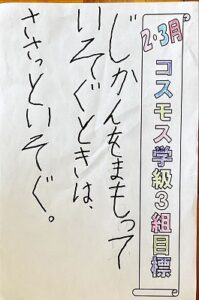 2・3月
コスモス学級3組目標
じかんをまもって
いそぐときは、
ささっといそぐ。